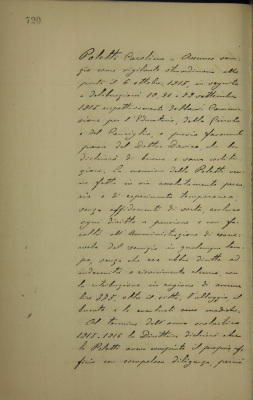 720
Poletti Carolina - Assunse servi-
gio come vigilante straordinaria alle
prente il 6 ottobre, 1915, in seguito
a deliberazioni 10, 21 e 22 settembre
1915 rispettivamente della Commis-
sione per l'Educatorio, della Giunta
e del Consiglio, e previo favorevole
parere del Dottor che la
dichiarò di buona e sana costitu-
zione. La nomina della Poletti ven-
ne fatta in via assolutamente preca-
ria e di esperimento temporaneo,
senza affidamento di sorta, escluso
ogni diritto a pensione e con fa-
coltà all'Amministrazione di esone-
rarla dal servigio in qualunque tem-
po, senza che essa abbia diritto ad
indennità o risarcimento alcuno, con
la retribuzione in ragione di annue
lire 225, oltre il vitto, l'alloggio, il
bucato e le eventuali cure mediche.
Al termine dell'anno scolastico
1915-1916 la Direttrice dichiarò che
la Poletti aveva compiuto il proprio uf-
ficio con scrupolosa diligenza, perciò